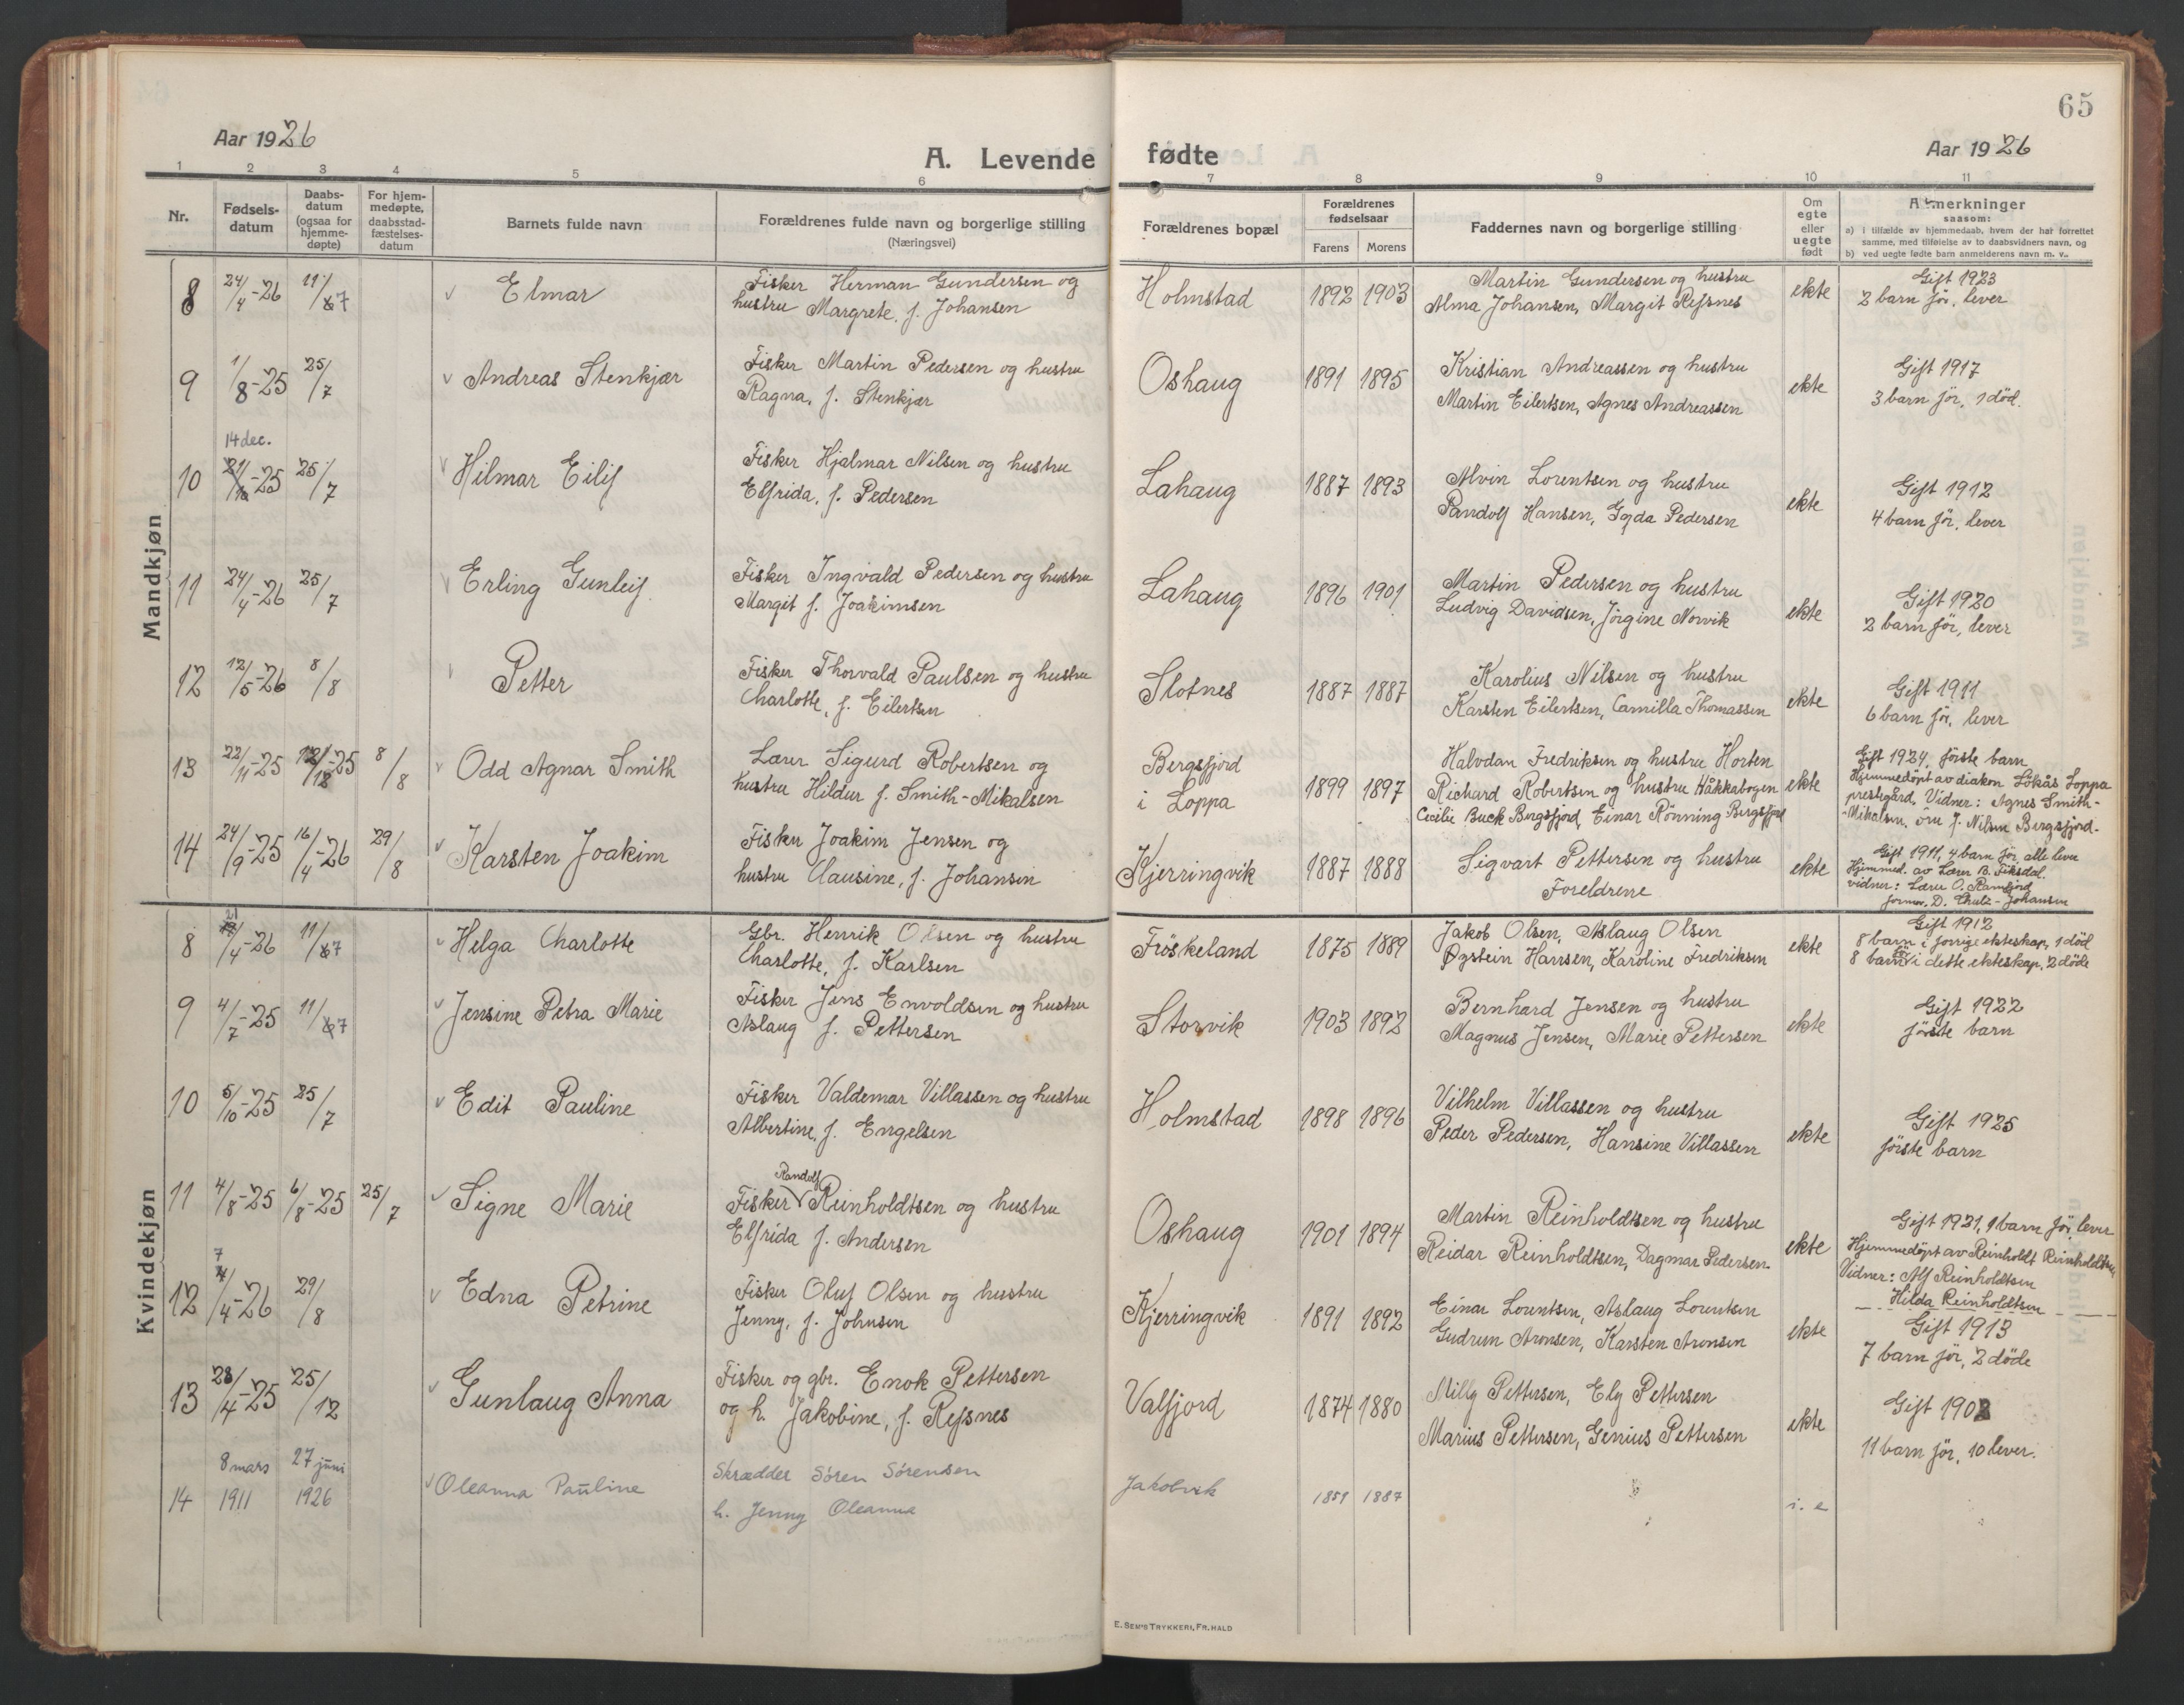 65
Aar 1926
A. Levende fødte
Aar 1926
1 2 3 4 5 6 7 8 9 10 11
Nr.
Fødsels-
datum
Daabs-
datum
(ogsaa for
hjemme-
døpte)
For hjem-
medøpte,
daabsstad-
fæstelses-
datum
Barnets fulde navn
Forældrenes fulde navn og borgerlige stilling
(Næringsvei)
Forældrenes bopæl
Forældrenes
fødselsaar
Farens Morens
Faddernes navn og borgerlige stilling
Om
egte
eller
uegte
født
Anmerkninger
saasom:
a) i tilfælde av hjemmedaab, hvem der har forrettet
samme, med tilføielse av to daabsvidners navn, og
b) ved uegte fødte barn anmelderens navn m. v.
Mandkjøn
8 24/4-26 11/7 Elmar
Fisker Herman Gundersen og
hustru Margrete, f. Johansen
Holmstad 1892 1903
Martin Gundersen og hustru
Alma Johansen, Margit Refsnes
ekte
Gift 1923
2 barn för, lever
9 1/8-25 25/7 Andreas Stenkjær
Fisker Martin Pedersen og hustru
Ragna, f. Stenkjær
Oshaug 1891 1895
Kristian Andreassen og hustru
Martin Eilertsen, Agnes Andreassen
ekte
Gift 1917
3 barn för, 1 död.
14 dec.
10 21/10-25 25/7 Hilmar Eilif
Fisker Hjalmar Nilsen og hustru
Elfrida, f. Pedersen
Lahaug 1887 1893
Alvin Lorentsen og hustru
Randolf Hansen, Gyda Pedersen
ekte
Gift 1912
4 barn för, lever
11 24/4-26 25/7 Erling Gunleif
Fisker Ingvald Pedersen og hustru
Margit f. Joakimsen
Lahaug 1896 1901
Martin Pedersen og hustru
Ludvig Davidsen, Jörgine Norvik
ekte
Gift 1920
2 barn för, lever
12 12/5-26 8/8 Petter
Fisker Thorvald Paulsen og hustru
Charlotte, f. Eilertsen
Slotnes 1887 1887
Karolius Nilsen og hustru
Karsten Eilertsen, Camilla Thomassen
ekte
Gift 1911
6 barn för, lever
13 22/11-25 12/12-25 8/8 Odd Agnar Smith
Lærer Sigurd Robertsen og
hustru Hildur f. Smith-Mikalsen
Bergsfjord
i Loppa
1899 1897
Halvdan Fredriksen og hustru Horten
Richard Robertsen og hustru Håkkabogen
Cecilie Buck Bergsfjord, Einar Rönning Bergsfjord
ekte
Gift 1924, förste barn
Hjemmedöpt av diakon Lökås Loppa
prestegård. Vidner: Agnes Smith-
-Mikalsen, fru J. Nilsen Bergsfjord.
14 24/9-25 16/4-26 29/8 Karsten Joakim
Fisker Joakim Jensen og
hustru Clausine, f. Johansen
Kjerringvik 1887 1888
Sigvart Pettersen og hustru
Foreldrene
ekte
Gift 1911, 4 barn för, alle lever
Hjemmed. av Lærer B. Fiksdal.
vidner: Lærer O. Ramfjord
formor. D. Chulz-Johansen
Kvindekjøn
8 21/4-26 11/7 Helga Charlotte
Gbr. Henrik Olsen og hustru
Charlotte, f. Karlsen
Fröskeland 1875 1889
Jakob Olsen, Aslaug Olsen
Øystein Hansen, Karoline Fredriksen
ekte
Gift 1912
8 barn i forrige ekteskap, 1 död
8 barn för i dette ekteskap, 2 döde
9 4/7-25 11/7 Jensine Petra Marie
Fisker Jens Envoldsen og hustru
Aslaug f. Pettersen
Storvik 1903 1892
Bernhard Jensen og hustru
Magnus Jensen, Marie Pettersen
ekte
Gift 1922
förste barn
10 5/10-25 25/7 Edit Pauline
Fisker Valdemar Villassen og hustru
Albertine, f. Engelsen
Holmstad 1898 1896
Vilhelm Villassen og hustru
Peder Pedersen, Hansine Villassen
ekte
Gift 1925
förste barn
11 4/8-25 6/8-25 25/7 Signe Marie
Randolf
Fisker Reinholdtsen og hustru
Elfrida f. Andersen
Oshaug 1901 1894
Martin Reinholdtsen og hustru
Reidar Reinholdtsen, Dagmar Pedersen
ekte
Gift 1921, 1 barn för, lever
Hjemmedöpt av Reinholdt Reinholdtsen
Vidner: Alf Reinholdtsen
Hilda Reinholdtsen
12 7/4-26 29/8 Edna Petrine
Fisker Oluf Olsen og hustru
Jenny, f. Johnsen
Kjerringvik 1891 1892
Einar Lorentsen, Aslaug Lorentsen
Gudrun Aronsen, Karsten Aronsen
ekte
Gift 1913
7 barn för, 2 döde
13 28/4-25 25/12 Gunlaug Anna
Fisker og gbr. Enok Pettersen
og h. Jakobine, f. Refsnes
Valfjord 1874 1880
Milly Pettersen, Ely Pettersen
Marius Pettersen, Genius Pettersen
ekte
Gift 1902
11 barn för, 10 lever.
14 8 mars 1911 27 juni 1926 Oleanna Pauline
Skrædder Sören Sörensen
h. Jenny Oleanna
Jakobvik 1851 1887
E. SEM'S TRYKKERI, FR.HALD